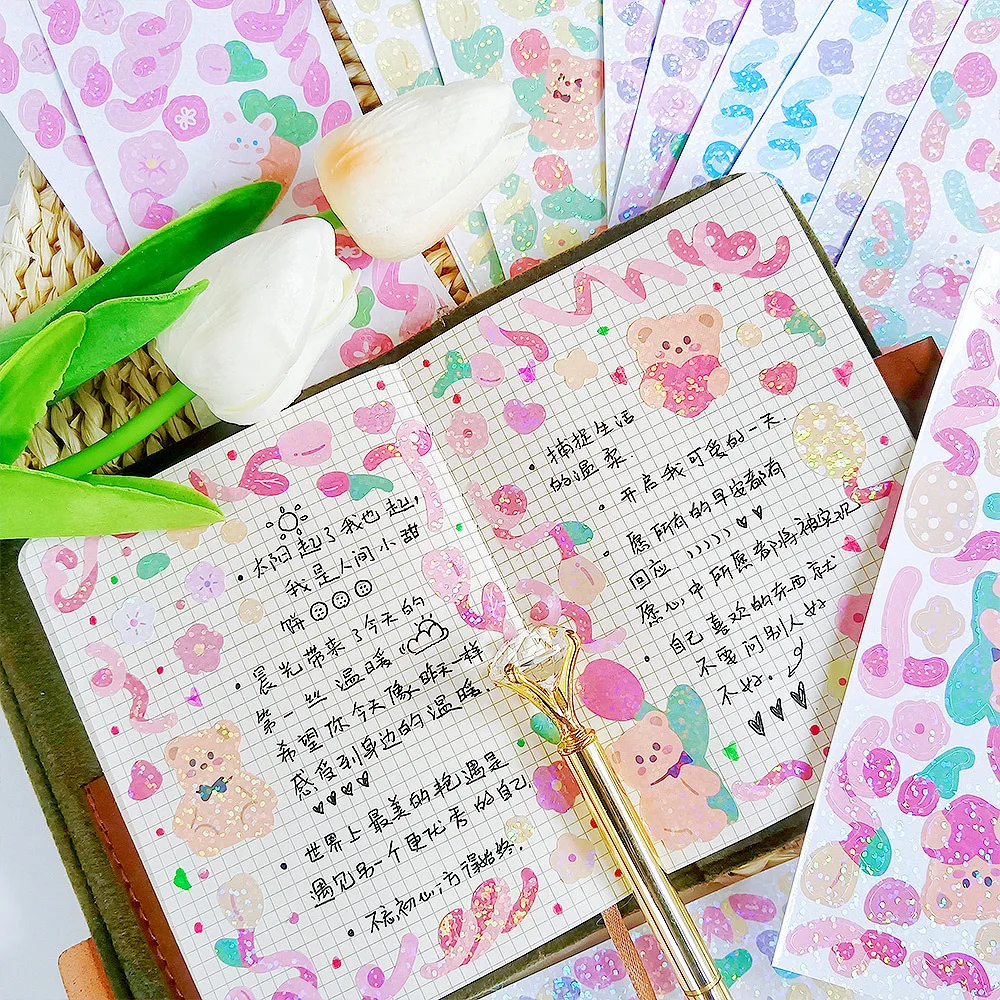 • 太阳起了我也起,
我是人间小甜
• 晨光带来了今天的
第一丝温暖
希望你今天像昨天一样
感受到身边的温暖.
• 世界上最美的艳遇是
遇见另一个更优秀的自己.
• 不忘初心,方得始终.
• 捕捉生活
的温柔.
• 开启我可爱的一天.
• 愿所有的早安都有
回应
愿心中所愿都将被实现
• 自己喜欢的东西就
不要问别人好
不好.